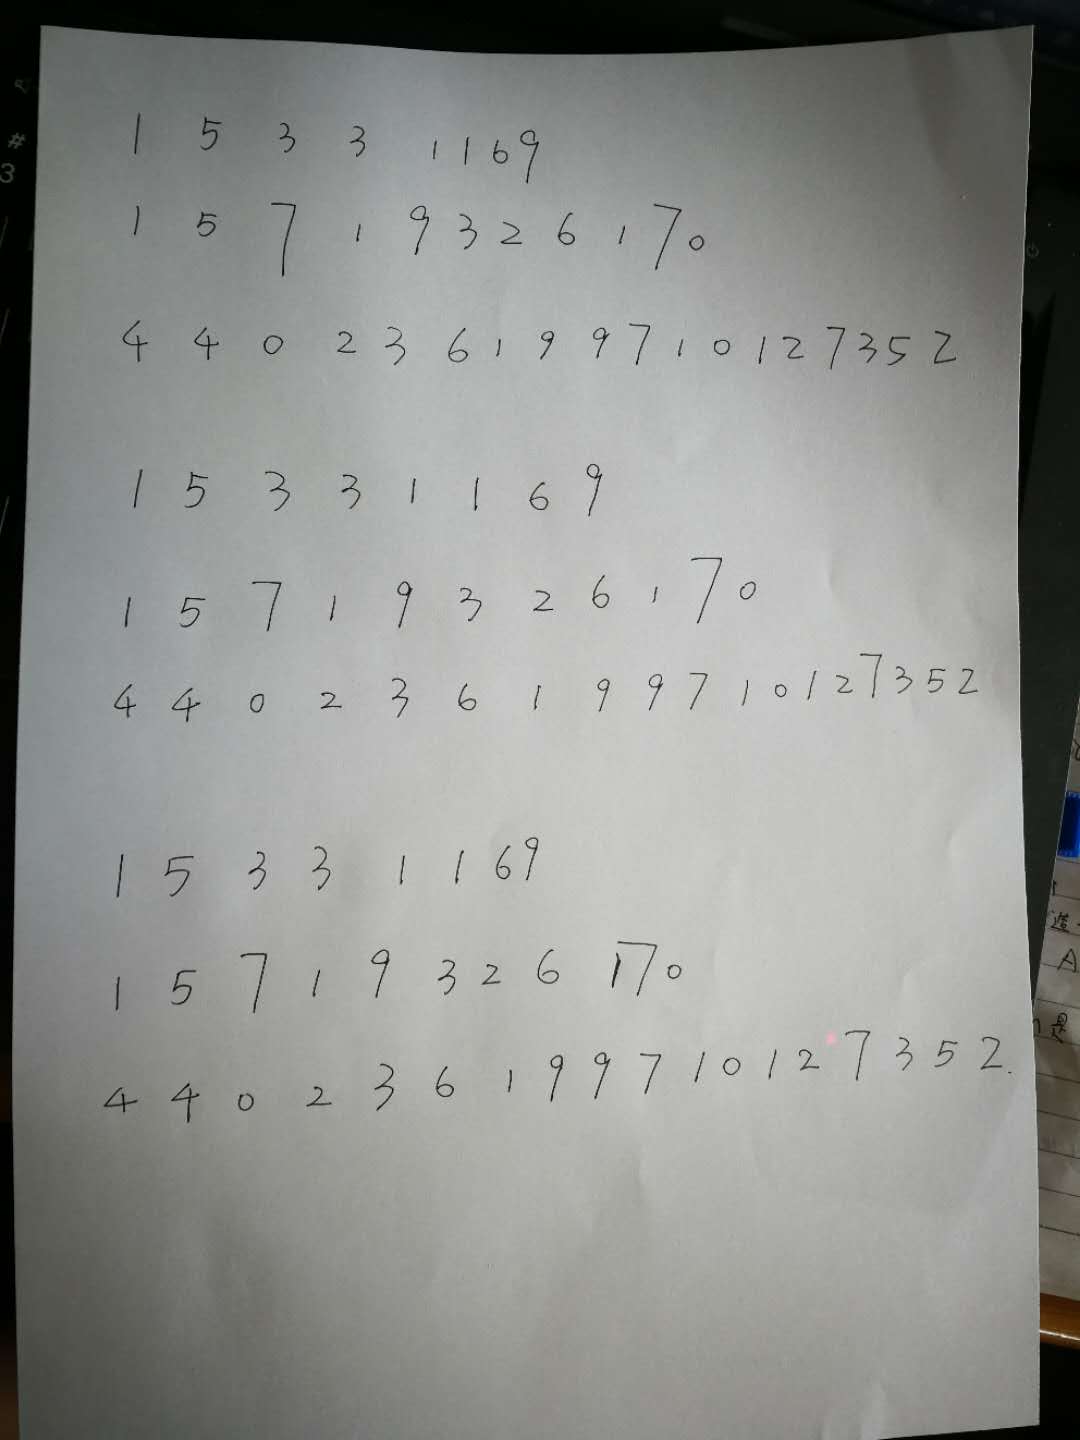 1 5 3 3 1 1 6 9
1 5 7 1 9 3 2 6 1 7 0
4 4 0 2 3 6 1 9 9 7 1 0 1 2 7 3 5 2
1 5 3 3 1 1 6 9
1 5 7 1 9 3 2 6 1 7 0
4 4 0 2 3 6 1 9 9 7 1 0 1 2 7 3 5 2
1 5 3 3 1 1 6 9
1 5 7 1 9 3 2 6 1 7 0
4 4 0 2 3 6 1 9 9 7 1 0 1 2 7 3 5 2.
#
3
A
是